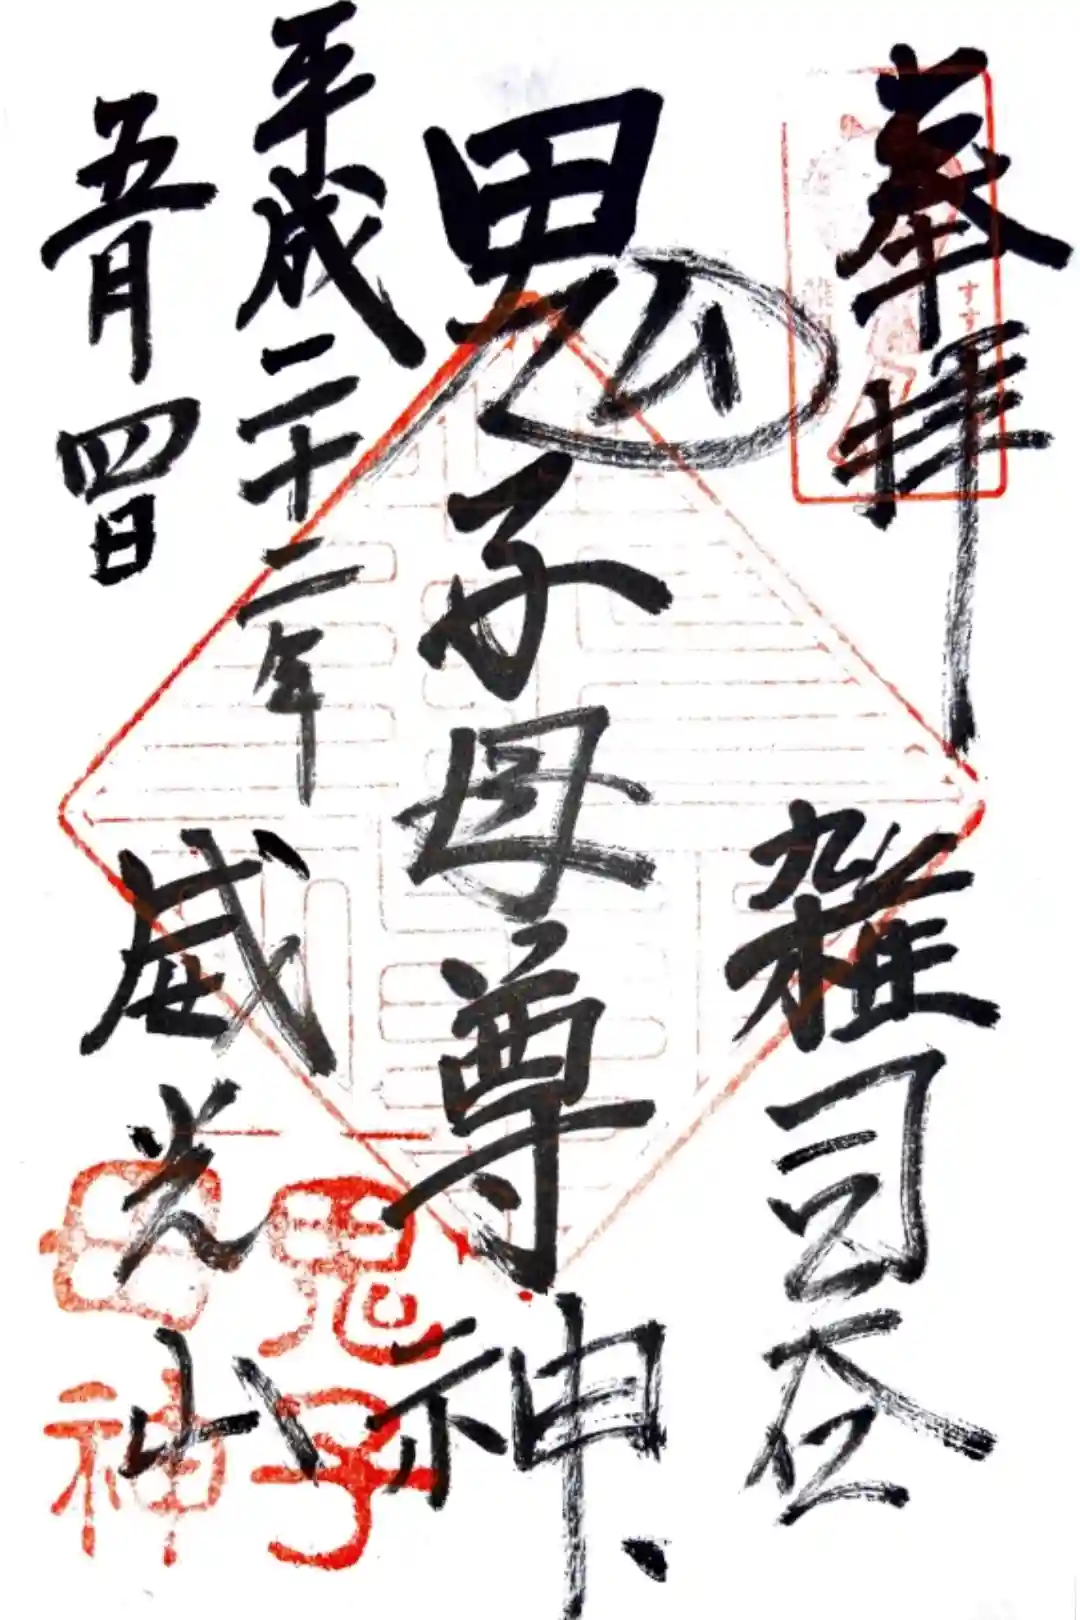 奉拝
雑司谷
鬼子母尊神
平成二十二年
五月四日
威光山
鬼子
母神
すす